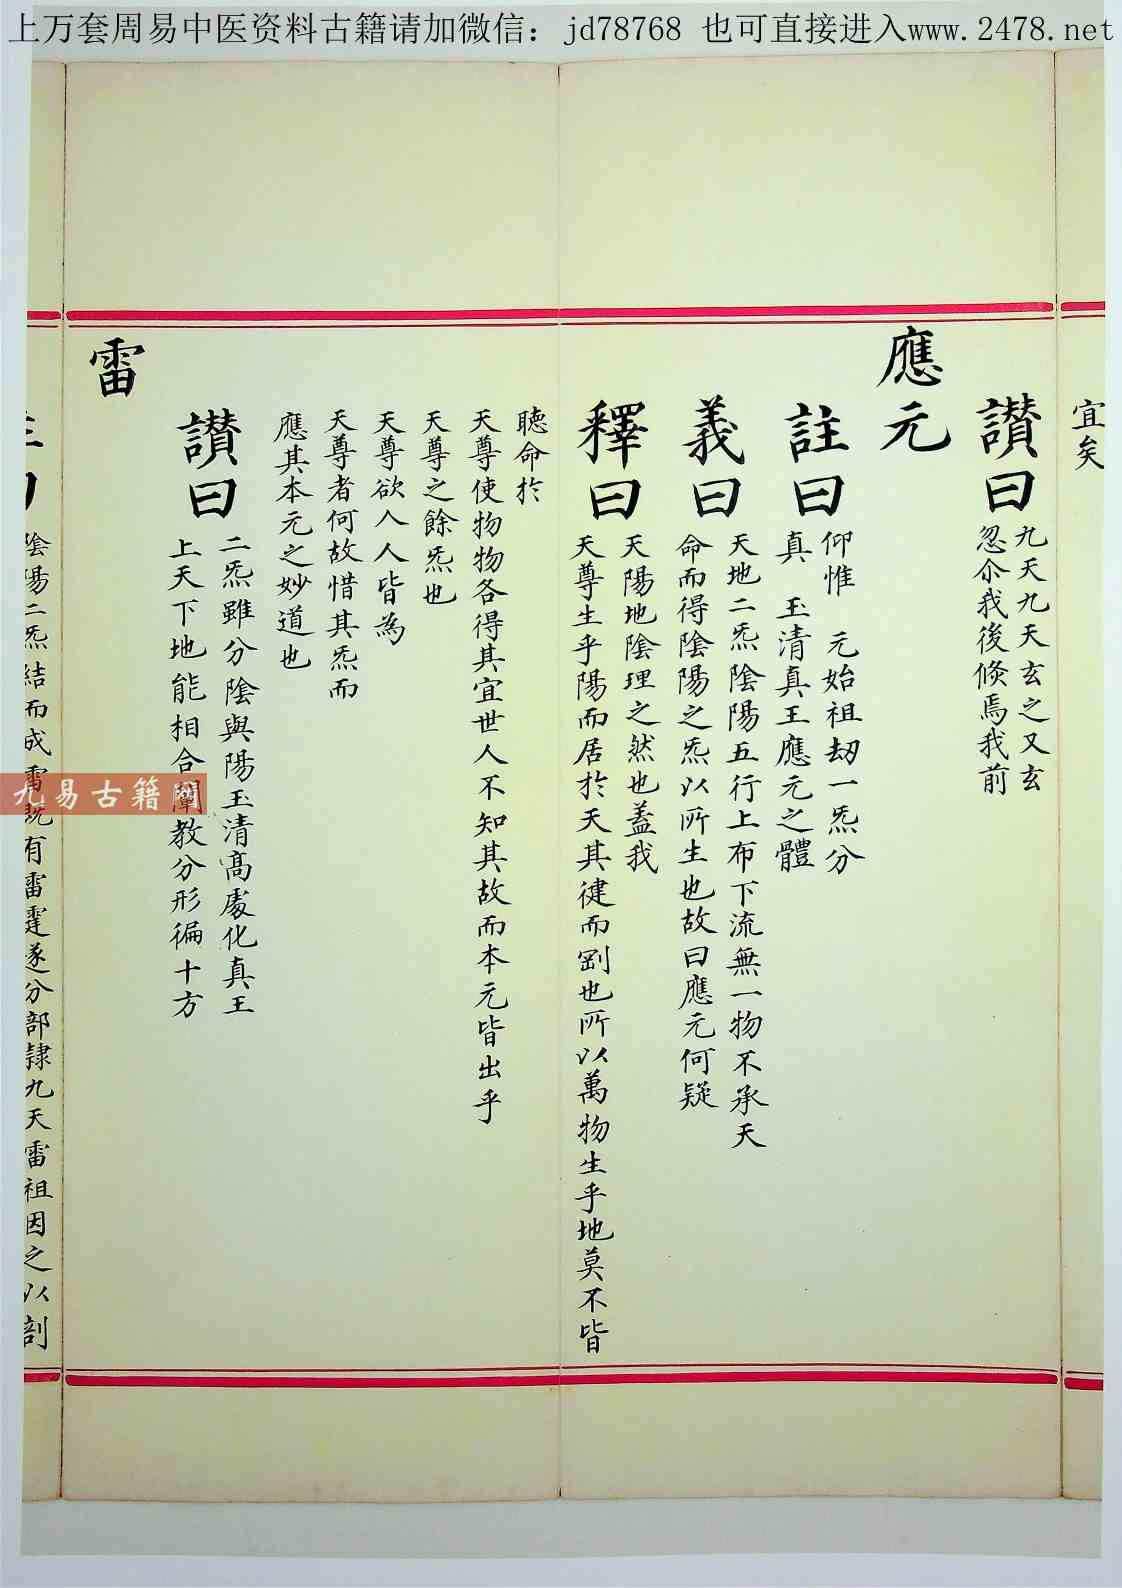 上万套周易中医资料古籍请加微信：jd78768 也可直接进入www.2478.net
宜矣
讃曰
九天九天玄之又玄
忽尒我後倏焉我前
應元
註曰
仰惟 元始祖劫一炁分
真 玉清真王應元之體
義曰
天地二炁陰陽五行上布下流無一物不承天
命而得陰陽之炁以所生也故曰應元何疑
釋曰
天陽地陰理之然也蓋我
天尊生乎陽而居於天其健而剛也所以萬物生乎地莫不皆
聽命於
天尊使物物各得其宜世人不知其故而本元皆出乎
天尊之餘炁也
天尊欲人人皆為
天尊者何故惜其炁而
應其本元之妙道也
讃曰
二炁雖分陰與陽玉清高處化真王
上天下地能相合闡教分形徧十方
雷
陰陽二炁結而成雷既有雷霆遂分部隷九天雷祖因之以剖
九易古籍网